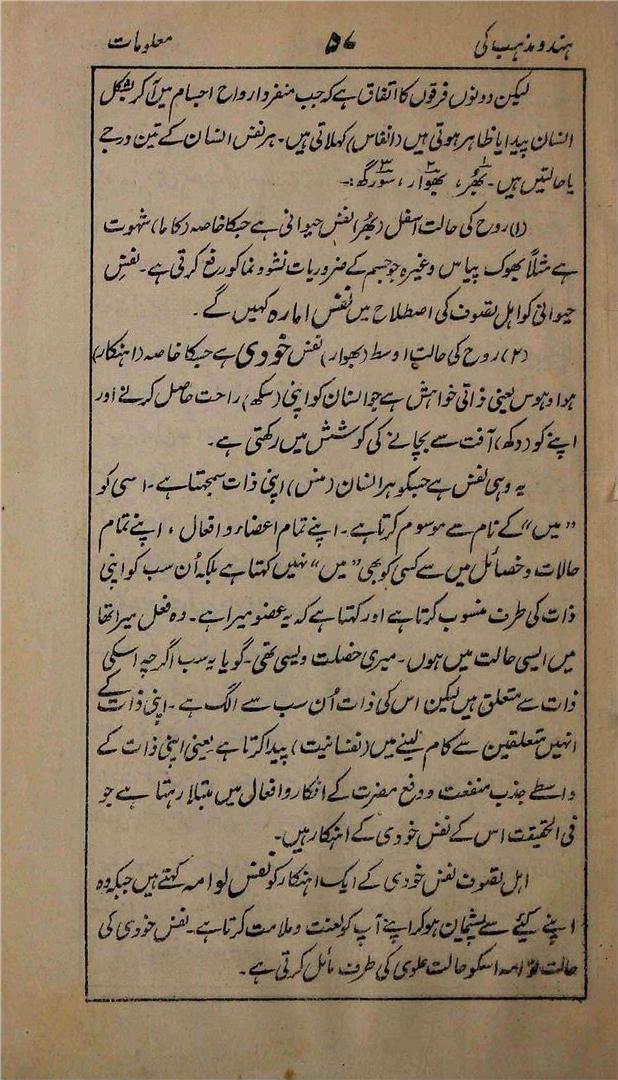 ہندو مذہب کی ۵۷ معلومات
لیکن دونوں فرقوں کا اتفاق ہے کہ جب منفرد ارواح اجسام میں آکر بشکل
انسان پیدا یا ظاہر ہوتی ہیں (انفاس) کہلاتی ہیں۔ ہر نفس انسان کے تین درجے
یا حالتیں ہیں۔ بھُر۱، بھوار۲، سورگھ۳:۔
(۱) روح کی حالت اسفل (بھُر) نفس حیوانی ہے جسکا خاصہ (کاما) شہوت
ہے مثلاً بھوک پیاس وغیرہ جو جسم کے ضروریات نشو و نما کو رفع کرتی ہے۔ نفسِ
حیوانی کو اہل تصوف کی اصطلاح میں نفس امارہ کہیں گے۔
(۲) روح کی حالت اوسط (بھوار) نفس خودی ہے جسکا خاصہ (اہنکار)
ہوا و ہوس یعنی ذاتی خواہش ہے جو انسان کو اپنی (سکھ) راحت حاصل کرنے اور
اپنے کو (دکھ) آفت سے بچانے کی کوشش میں رکھتی ہے۔
یہ وہی نفس ہے جسکو ہر انسان (منس) اپنی ذات سمجھتا ہے۔ اسی کو
”میں“ کے نام سے موسوم کرتا ہے۔ اپنے تمام اعضاء و افعال، اپنے تمام
حالات و خصائل میں سے کسی کو بھی ”میں“ نہیں کہتا ہے بلکہ اُن سب کو اپنی
ذات کی طرف منسوب کرتا ہے اور کہتا ہے کہ یہ عضو میرا ہے۔ وہ فعل میرا تھا
میں ایسی حالت میں ہوں۔ میری خصلت ویسی تھی۔ گویا یہ سب اگرچہ اسکی
ذات سے متعلق ہیں لیکن اس کی ذات اُن سب سے الگ ہے۔ اپنی ذات کے
انہیں متعلقین سے کام لینے میں (نفسانیت) پیدا کرتا ہے یعنی اپنی ذات کے
واسطے جذب منفعت و دفع مضرت کے افکار و افعال میں مبتلا رہتا ہے جو
فی الحقیقت اس کے نفس خودی کے اہنکار ہیں۔
اہل تصوف نفس خودی کے ایک اہنکار کو نفس لوامہ کہتے ہیں جبکہ وہ
اپنے کیئے سے پشیمان ہوکر اپنے آپ کو لعنت و ملامت کرتا ہے۔ نفس خودی کی
حالت لوامہ اسکو حالت علوی کی طرف مائل کرتی ہے۔